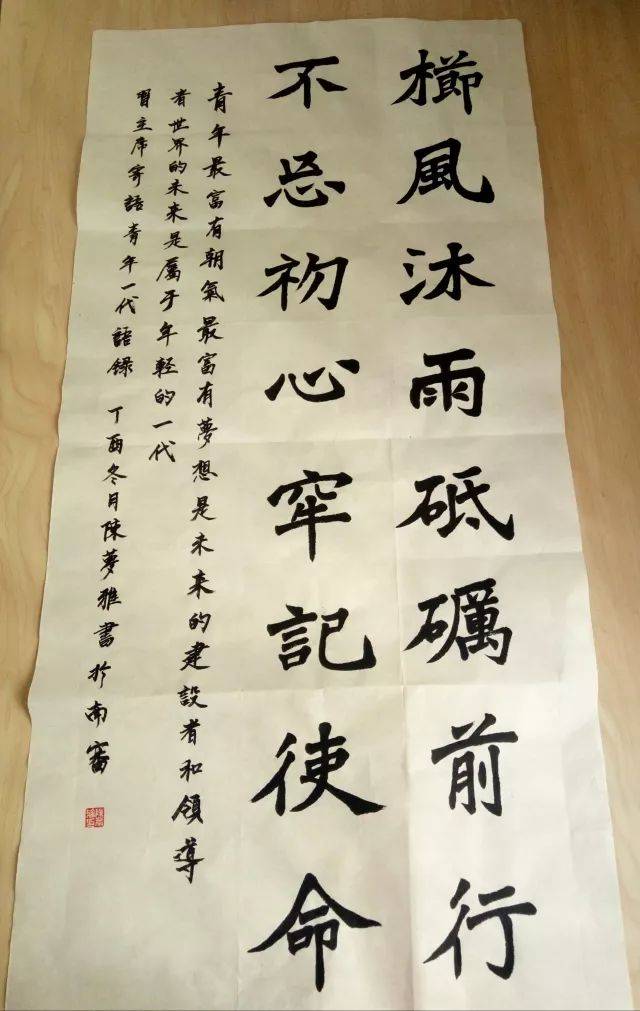 櫛風沐雨砥礪前行
不忘初心牢記使命
青年最富有朝氣最富有夢想是未来的建設者和領導
者世界的未来是屬于年轻的一代
習主席寄語青年一代語録 丁酉冬月陳夢雅書於南審